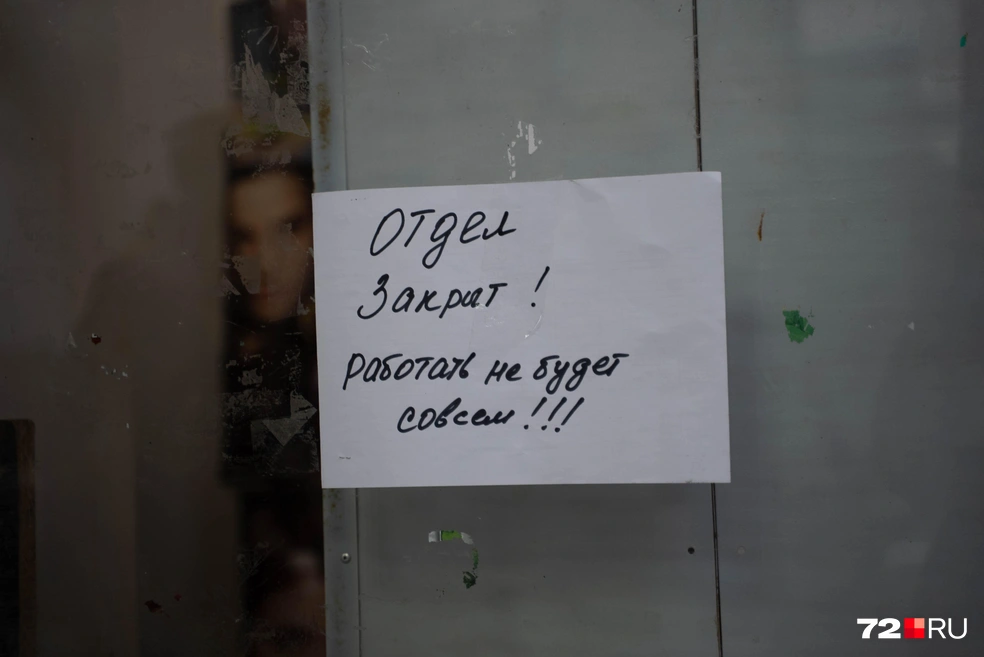 Отдел
Закрыт !
Работать не будет
совсем !!!
72 RU